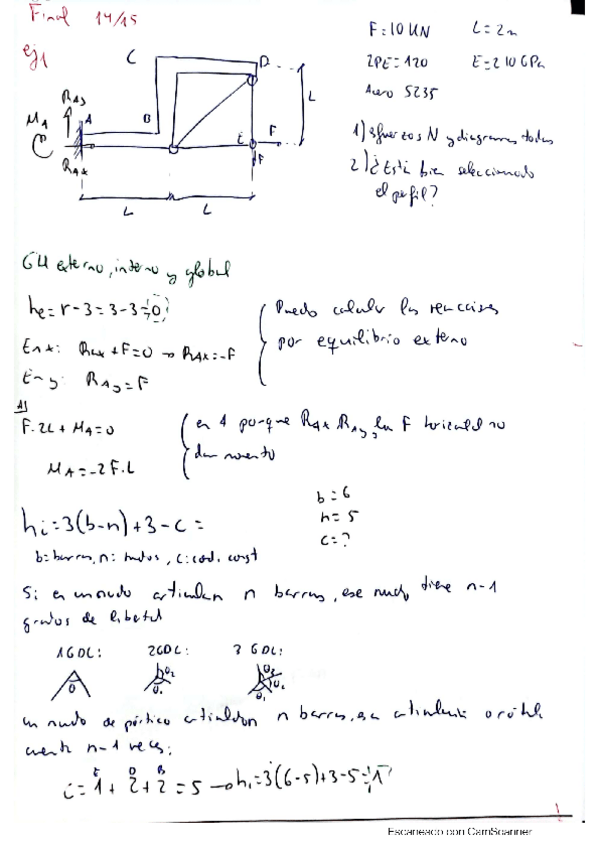 Final 14/15
ej1
F=10 kN L=2m
IPE=120 E=210 GPa
Acero S235
1) Esfuerzos N y diagramas todos
2) ¿Está bien seleccionado
el perfil?
C D
RAy
MA A B
L
E F
RAx F
L L
GH externo, interno y global
he= r-3=3-3=0
En x: RAx+F=0 → RAx=-F
En y: RAy=F
Puedo calcular las reacciones
por equilibrio externo
A)
F·2L+MA=0
MA=-2F·L
en A porque RAx RAy y la F horizontal no
dan momento
b=6
n=5
c=?
hi=3(b-n)+3-c=
b: barras, n: nudos, c: cond. const
Si en un nudo articulan n barras, ese nudo tiene n-1
grados de libertad
1GDL: 2GDL: 3 GDL:
θ θ1 θ2 θ1 θ2
un nudo de pórtico articulado n barras, esa articulación o rótula
cuenta n-1 veces:
E D B
c=1+2+2=5 → hi=3(6-5)+3-5=1
Escaneado con CamScanner